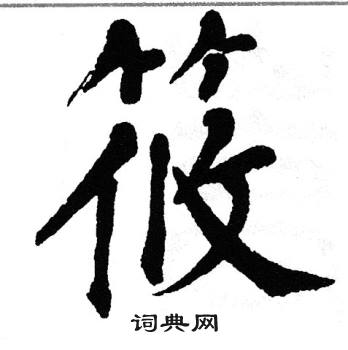 筱
词典网